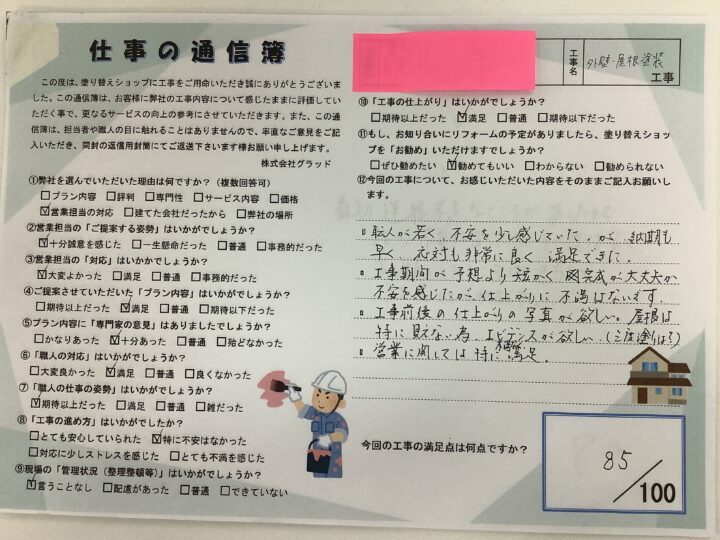 仕事の通信簿
この度は、塗り替えショップに工事をご用命いただき誠にありがとうございま
した。この通信簿は、お客様に弊社の工事内容について感じたままに評価してい
ただく事で、更なるサービスの向上の参考にさせていただきます。また、この通
信簿は、担当者や職人の目に触れることはありませんので、率直なご意見をご記
入いただき、同封の返信用封筒にてご返送下さいます様お願い申し上げます。
株式会社グラッド
①弊社を選んでいただいた理由は何ですか?(複数回答可)
□プラン内容 □評判 □専門性 □サービス内容 □価格
☑営業担当の対応 □建てた会社だったから □弊社の場所
②営業担当の「ご提案する姿勢」はいかがでしょうか?
☑十分誠意を感じた □一生懸命だった □普通 □事務的だった
③営業担当の「対応」はいかがでしょうか?
☑大変よかった □満足 □普通 □事務的だった
④ご提案させていただいた「プラン内容」はいかがでしょうか?
□期待以上だった ☑満足 □普通 □期待以下だった
⑤プラン内容に「専門家の意見」はありましたでしょうか?
□かなりあった ☑十分あった □普通 □殆どなかった
⑥「職人の対応」はいかがでしょうか?
□大変良かった ☑満足 □普通 □良くなかった
⑦「職人の仕事の姿勢」はいかがでしょうか?
☑期待以上だった □満足 □普通 □雑だった
⑧「工事の進め方」はいかがでしたか?
□とても安心していられた ☑特に不安はなかった
□対応に少しストレスを感じた □とても不満を感じた
⑨現場の「管理状況(整理整頓等)」はいかがでしょうか?
☑言うことなし □配慮があった □普通 □できていない
工事名 外壁・屋根塗装 工事
⑩「工事の仕上がり」はいかがでしょうか?
□期待以上だった ☑満足 □普通 □期待以下だった
⑪もし、お知り合いにリフォームの予定がありましたら、塗り替えショッ
プを「お勧め」いただけますでしょうか?
□ぜひ勧めたい ☑勧めてもいい □わからない □勧められない
⑫今回の工事について、お感じいただいた内容をそのままご記入お願いし
ます。
職人が若く不安を少し感じていた。が 納期も
早く、対応も非常に良く満足できた。
工事期間が予想より短かく 完成が大丈夫か
不安を感じたが、仕上がりに不満はないです。
工事前後の仕上がりの写真が欲しい。屋根は
特に見えない為、エビデンスが欲しい(三度塗りは?)
営業に関しては特に満足。
今回の工事の満足点は何点ですか?
85/100